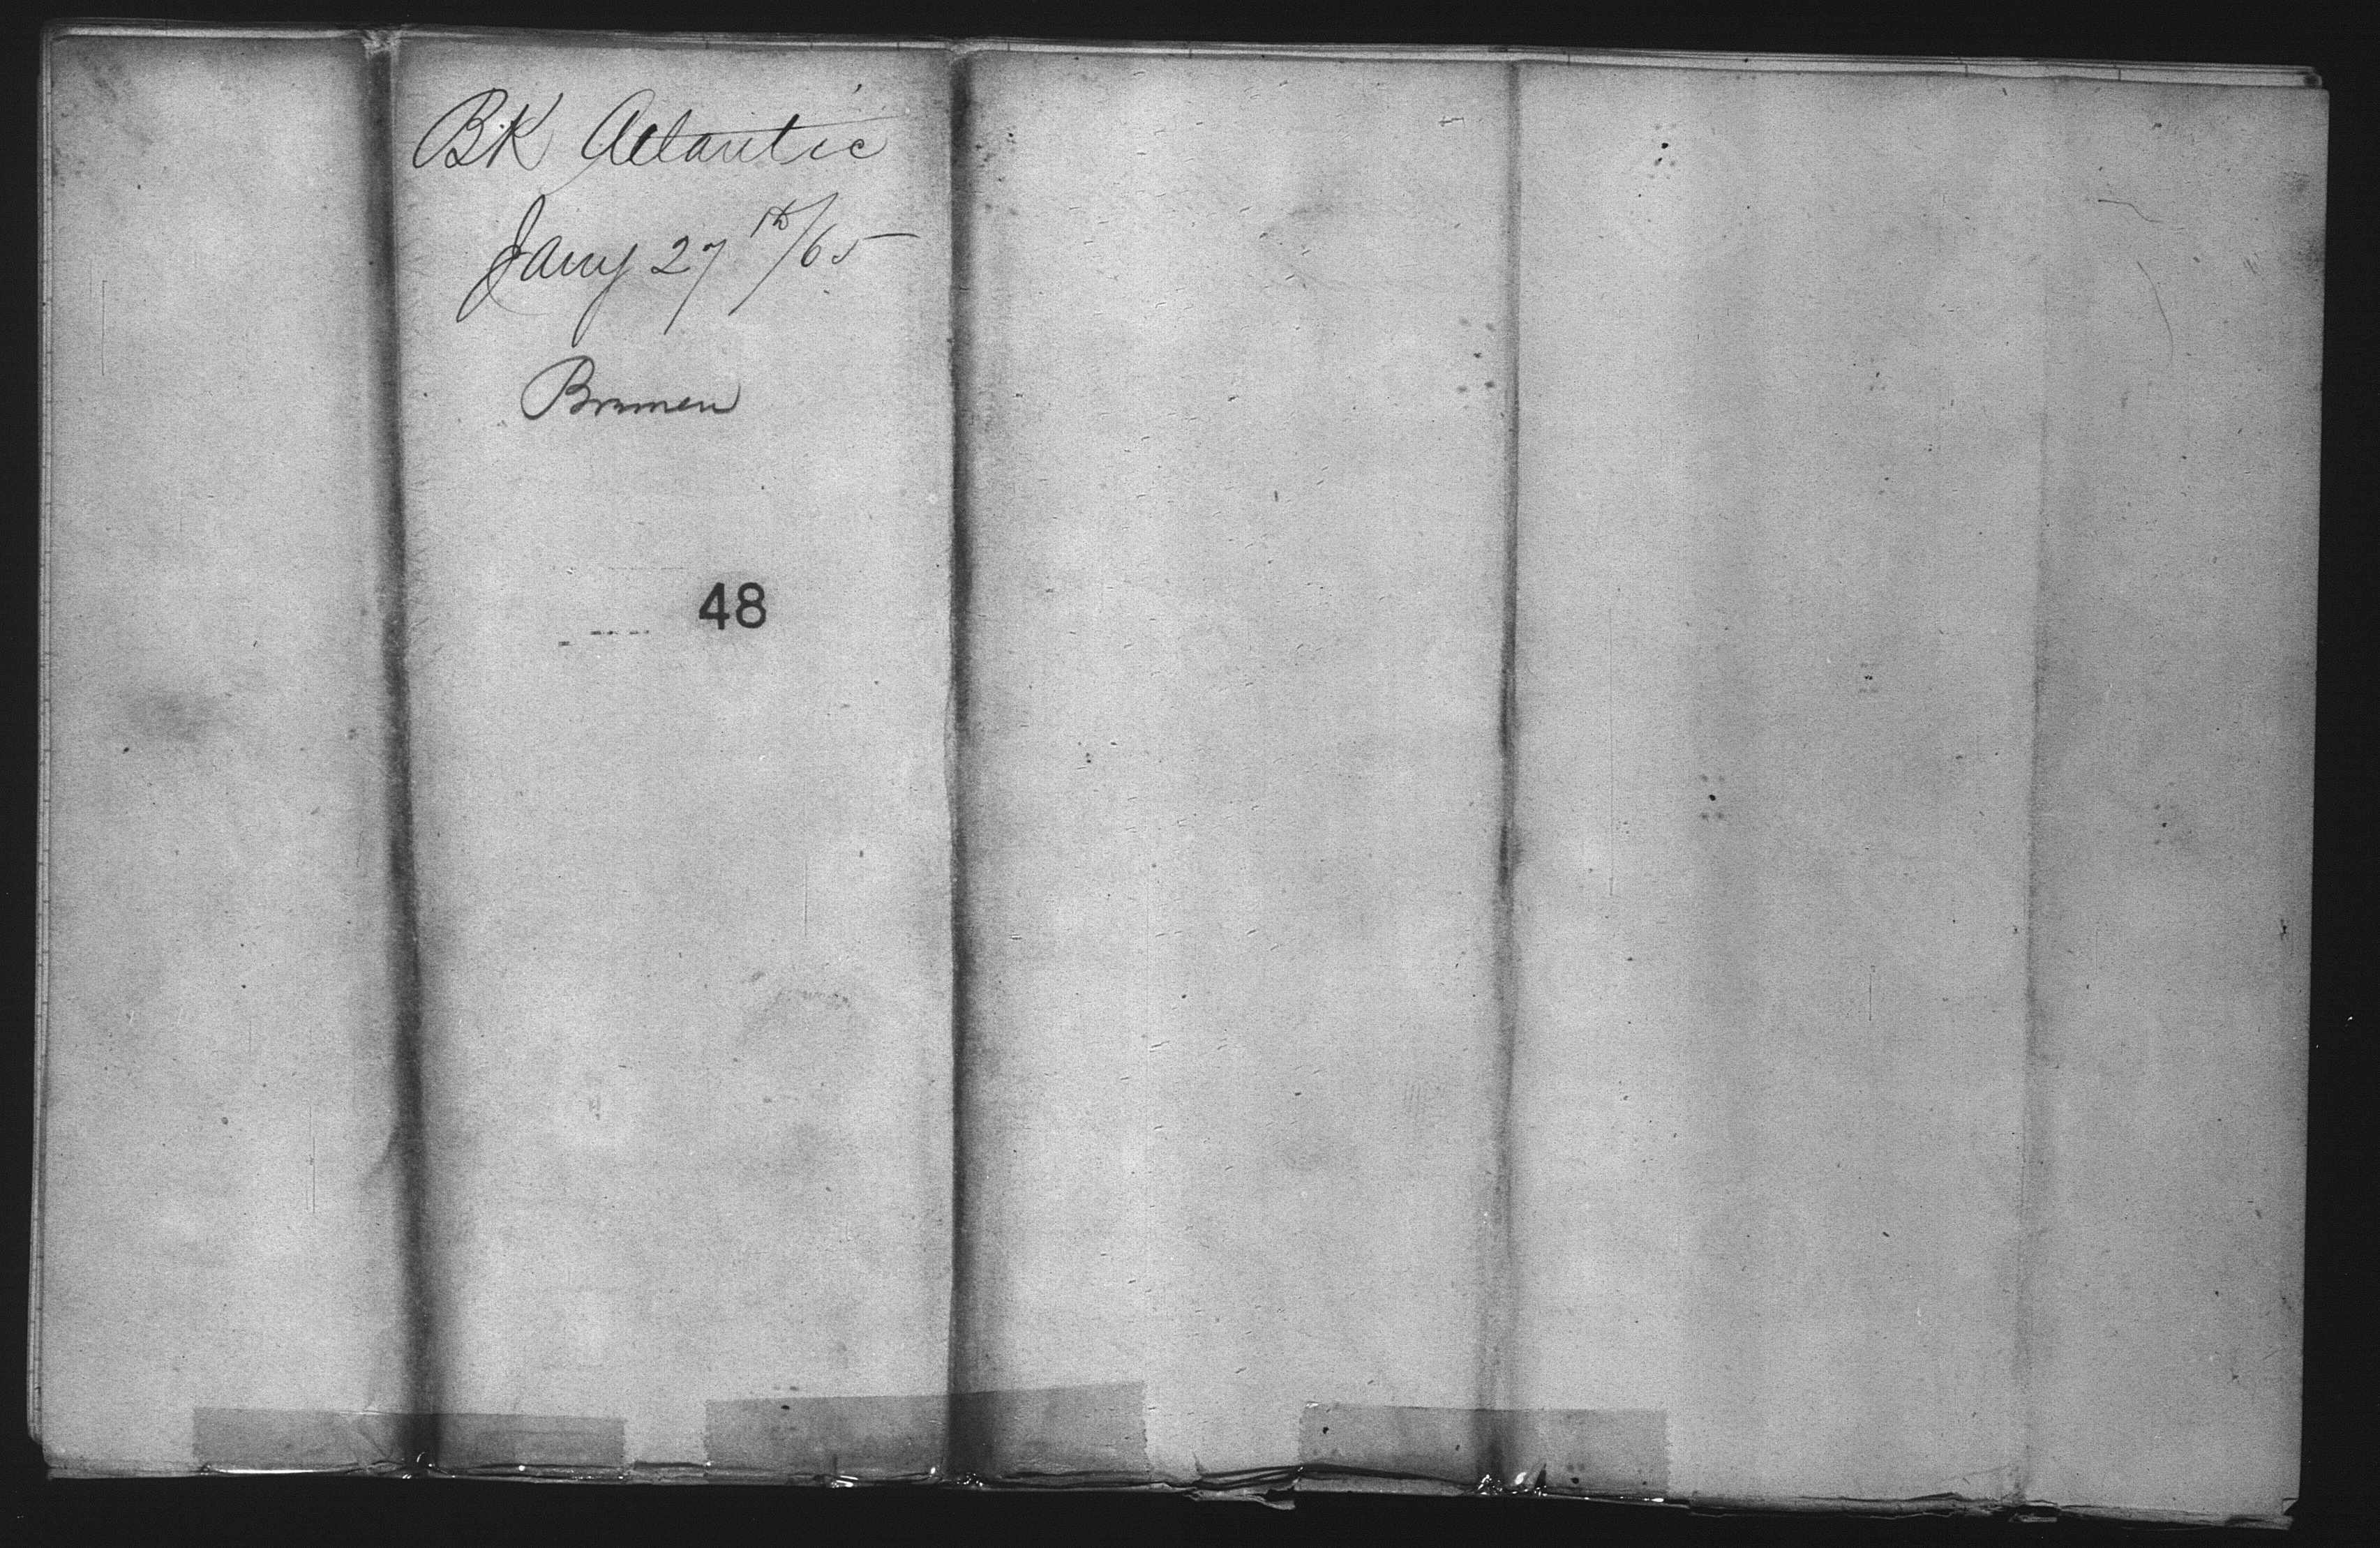 BK Atlantic
Jany 27th/65
Bremen
48